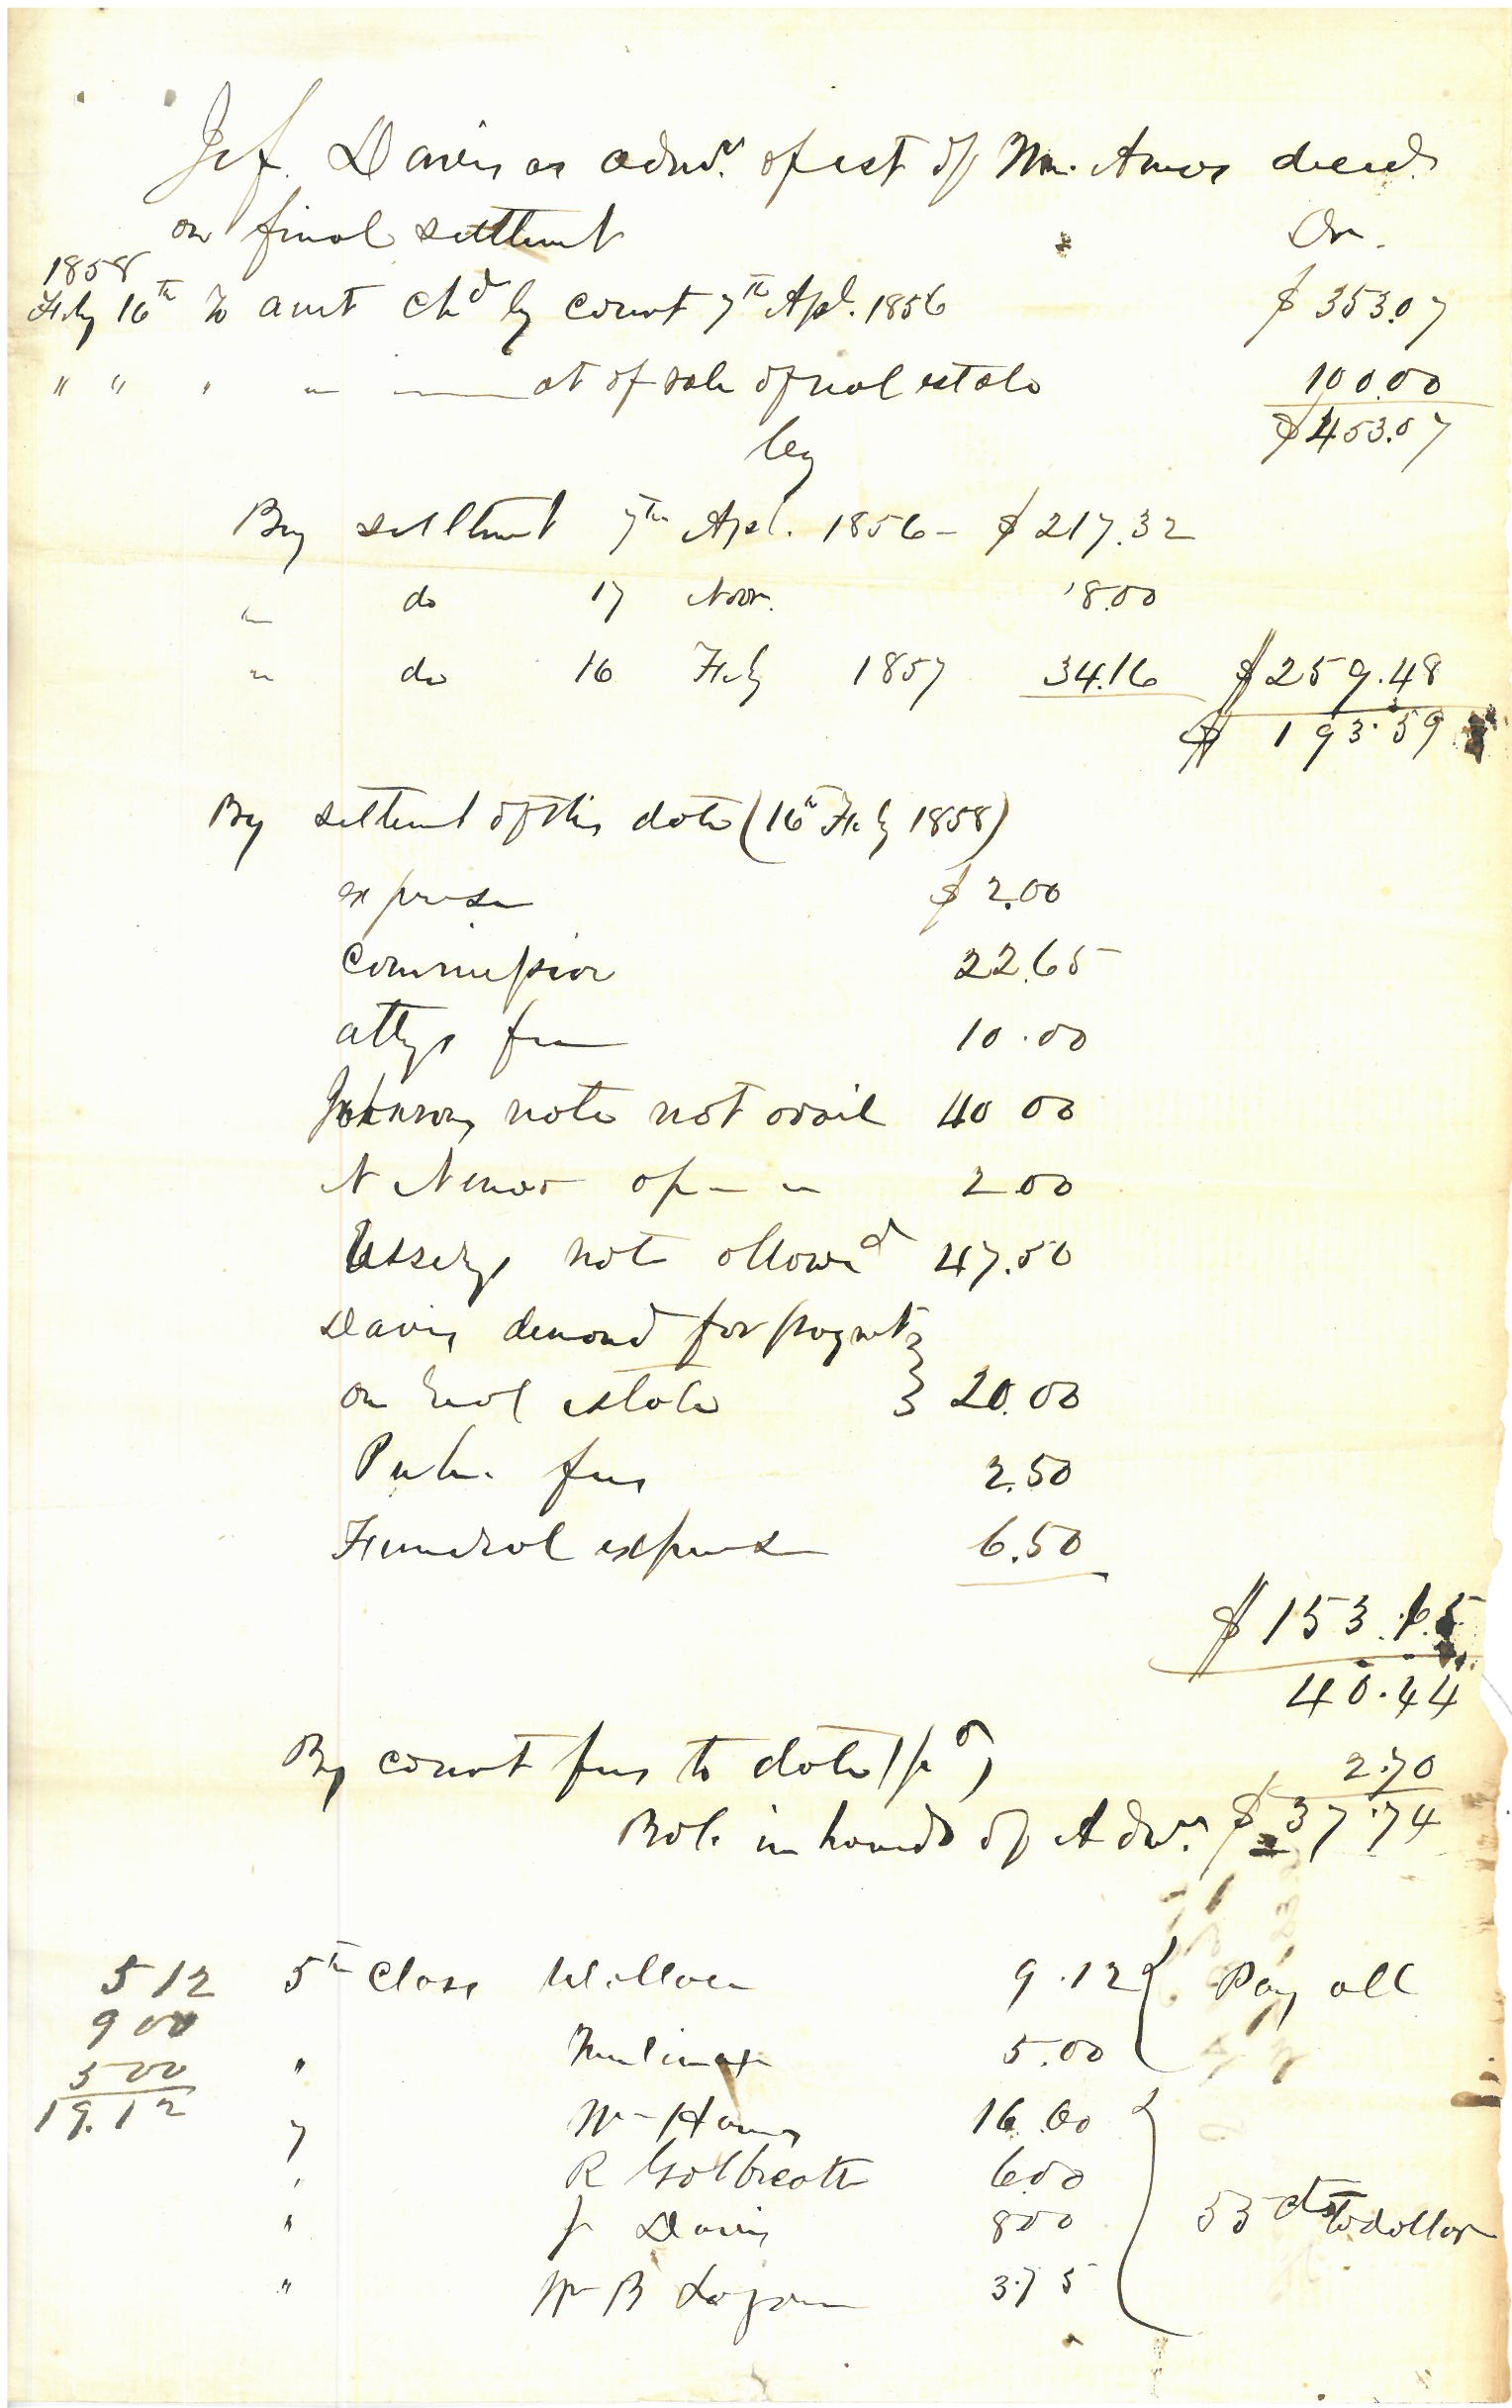 Jef. Davis as admr. of est of Wm. Amos decd.
on final settlemt Dr.
1858
Feby 16th To amt chd by court 7th Apl. 1856 $ 353.07
" " " " at of sale of real estate 100.00
$ 453.07
By settlmt 7th Apl. 1856 - $ 217.32
" do 17 Novr. 8.00
" do 16 Feby 1857 34.16 $ 259.48
$ 193.59
By settlemt of this date (16th Feby 1858)
expense $ 2.00
Commission 22.65
attys fee 10.00
Johnson note not avail 40 00
N 2.00
Ussery not allowed 47.50
Davis demand for paymt
on real estate 20.00
Pub. fees 2.50
Funeral expense 6.50
$ 153.15
40.44
By court fees to date (pd) 2.70
Bal. in hands of Admr. $ 37.74
5 12 5th Class Wallace 9.12 Pay all
9 00
5 00 " 5.00
19.12
" Wm Harris 16 00
" R Golbreath 6.00
" J Davis 8 00 53 cts to dollar
" Wm B Logan 3.75